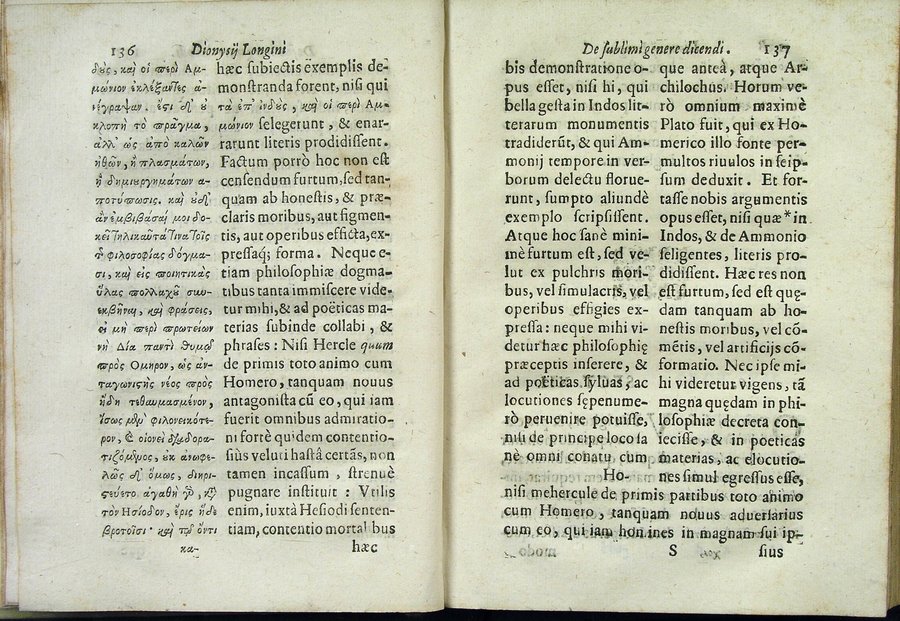 136 Dionysij Longini
δοὺς, καὶ οἱ περὶ Αμ-
μώνιον ἐκλέξαντες ἀ-
νέγραψαν. ἔστι δ' οὐ
κλοπὴ τὸ πρᾶγμα,
ἀλλ' ὡς ἀπὸ καλῶν
ἠθῶν, ἢ πλασμάτων,
ἢ δημιουργημάτων ἀ-
ποτύπωσις. καὶ οὐδ'
ἂν ἐμβιβάσαι μοι δο-
κεῖ τηλικαῦτά τινα τοῖς
τῆς φιλοσοφίας δόγμα-
σι, καὶ εἰς ποιητικὰς
ὕλας πολλαχοῦ συν-
εκβῆναι, καὶ φράσεις,
εἰ μὴ περὶ πρωτείων
νὴ Δία παντὶ θυμῷ
πρὸς Ομηρον, ὡς ἀν-
ταγωνιστὴς νέος πρὸς
ἤδη τεθαυμασμένον,
ἴσως μὲν φιλονεικότε-
ρον, καὶ οἱονεὶ διαδορα-
τιζόμενος, οὐκ ἀνωφε-
λῶς δ' ὅμως, διηρι-
στεύετο. ἀγαθὴ γὰρ, κατὰ
τὸν Ησίοδον, ἔρις ἥδε
βροτοῖσι· καὶ τῷ ὄντι
κα-
hæc subiectis exemplis de-
monstranda forent, nisi qui
τὰ ἐπ' ἰνδοὺς, καὶ οἱ περὶ Αμ-
μώνιον selegerunt, & enar-
rarunt literis prodidissent.
Factum porrò hoc non est
censendum furtum, sed tan-
quam ab honestis, & præ-
claris moribus, aut figmen-
tis, aut operibus efficta, ex-
pressaq; forma. Neque e-
tiam philosophiæ dogma-
tibus tanta immiscere vide-
tur mihi, & ad poëticas ma-
terias subinde collabi, &
phrases: Nisi Hercle quum
de primis toto animo cum
Homero, tanquam nouus
antagonista cū eo, qui iam
fuerit omnibus admiratio-
ni fortè quidem contentio-
sius veluti hastâ certās, non
tamen incassum, strenuè
pugnare instituit: Vtilis
enim, iuxtà Hesiodi senten-
tiam, contentio mortal bus
hæc
De sublimi genere dicendi. 137
bis demonstratione o-
pus esset, nisi hi, qui
bella gesta in Indos lit-
terarum monumentis
tradiderūt, & qui Am-
monij tempore in ver-
borum delectu florue-
runt, sumpto aliundè
exemplo scripsissent.
Atque hoc sanè mini-
mè furtum est, sed ve-
lut ex pulchris mori-
bus, vel simulacris, vel
operibus effigies ex-
pressa: neque mihi vi-
detur hæc philosophię
præceptis inserere, &
ad poëticas syluas, ac
locutiones sępenume-
rò peruenire potuisse,
nisi de principe loco sa
nè omni conatu cum
Ho-
que anteà, atque Ar-
chilochus. Horum ve-
rò omnium maximè
Plato fuit, qui ex Ho-
merico illo fonte per-
multos riuulos in seip-
sum deduxit. Et for-
tasse nobis argumentis
opus esset, nisi quæ* in
Indos, & de Ammonio
seligentes, literis pro-
didissent. Hæc res non
est furtum, sed est quę-
dam tanquam ab ho-
nestis moribus, vel cō-
mētis, vel artificijs cō-
formatio. Nec ipse mi-
hi videretur vigens, tā
magna quędam in phi-
losophiæ decreta con-
iecisse, & in poeticas
materias, ac elocutio-
nes simul egressus esse,
nisi mehercule de primis partibus toto animo
cum Homero, tanquam nouus aduersarius
cum eo, qui iam homines in magnam sui ip-
S sius